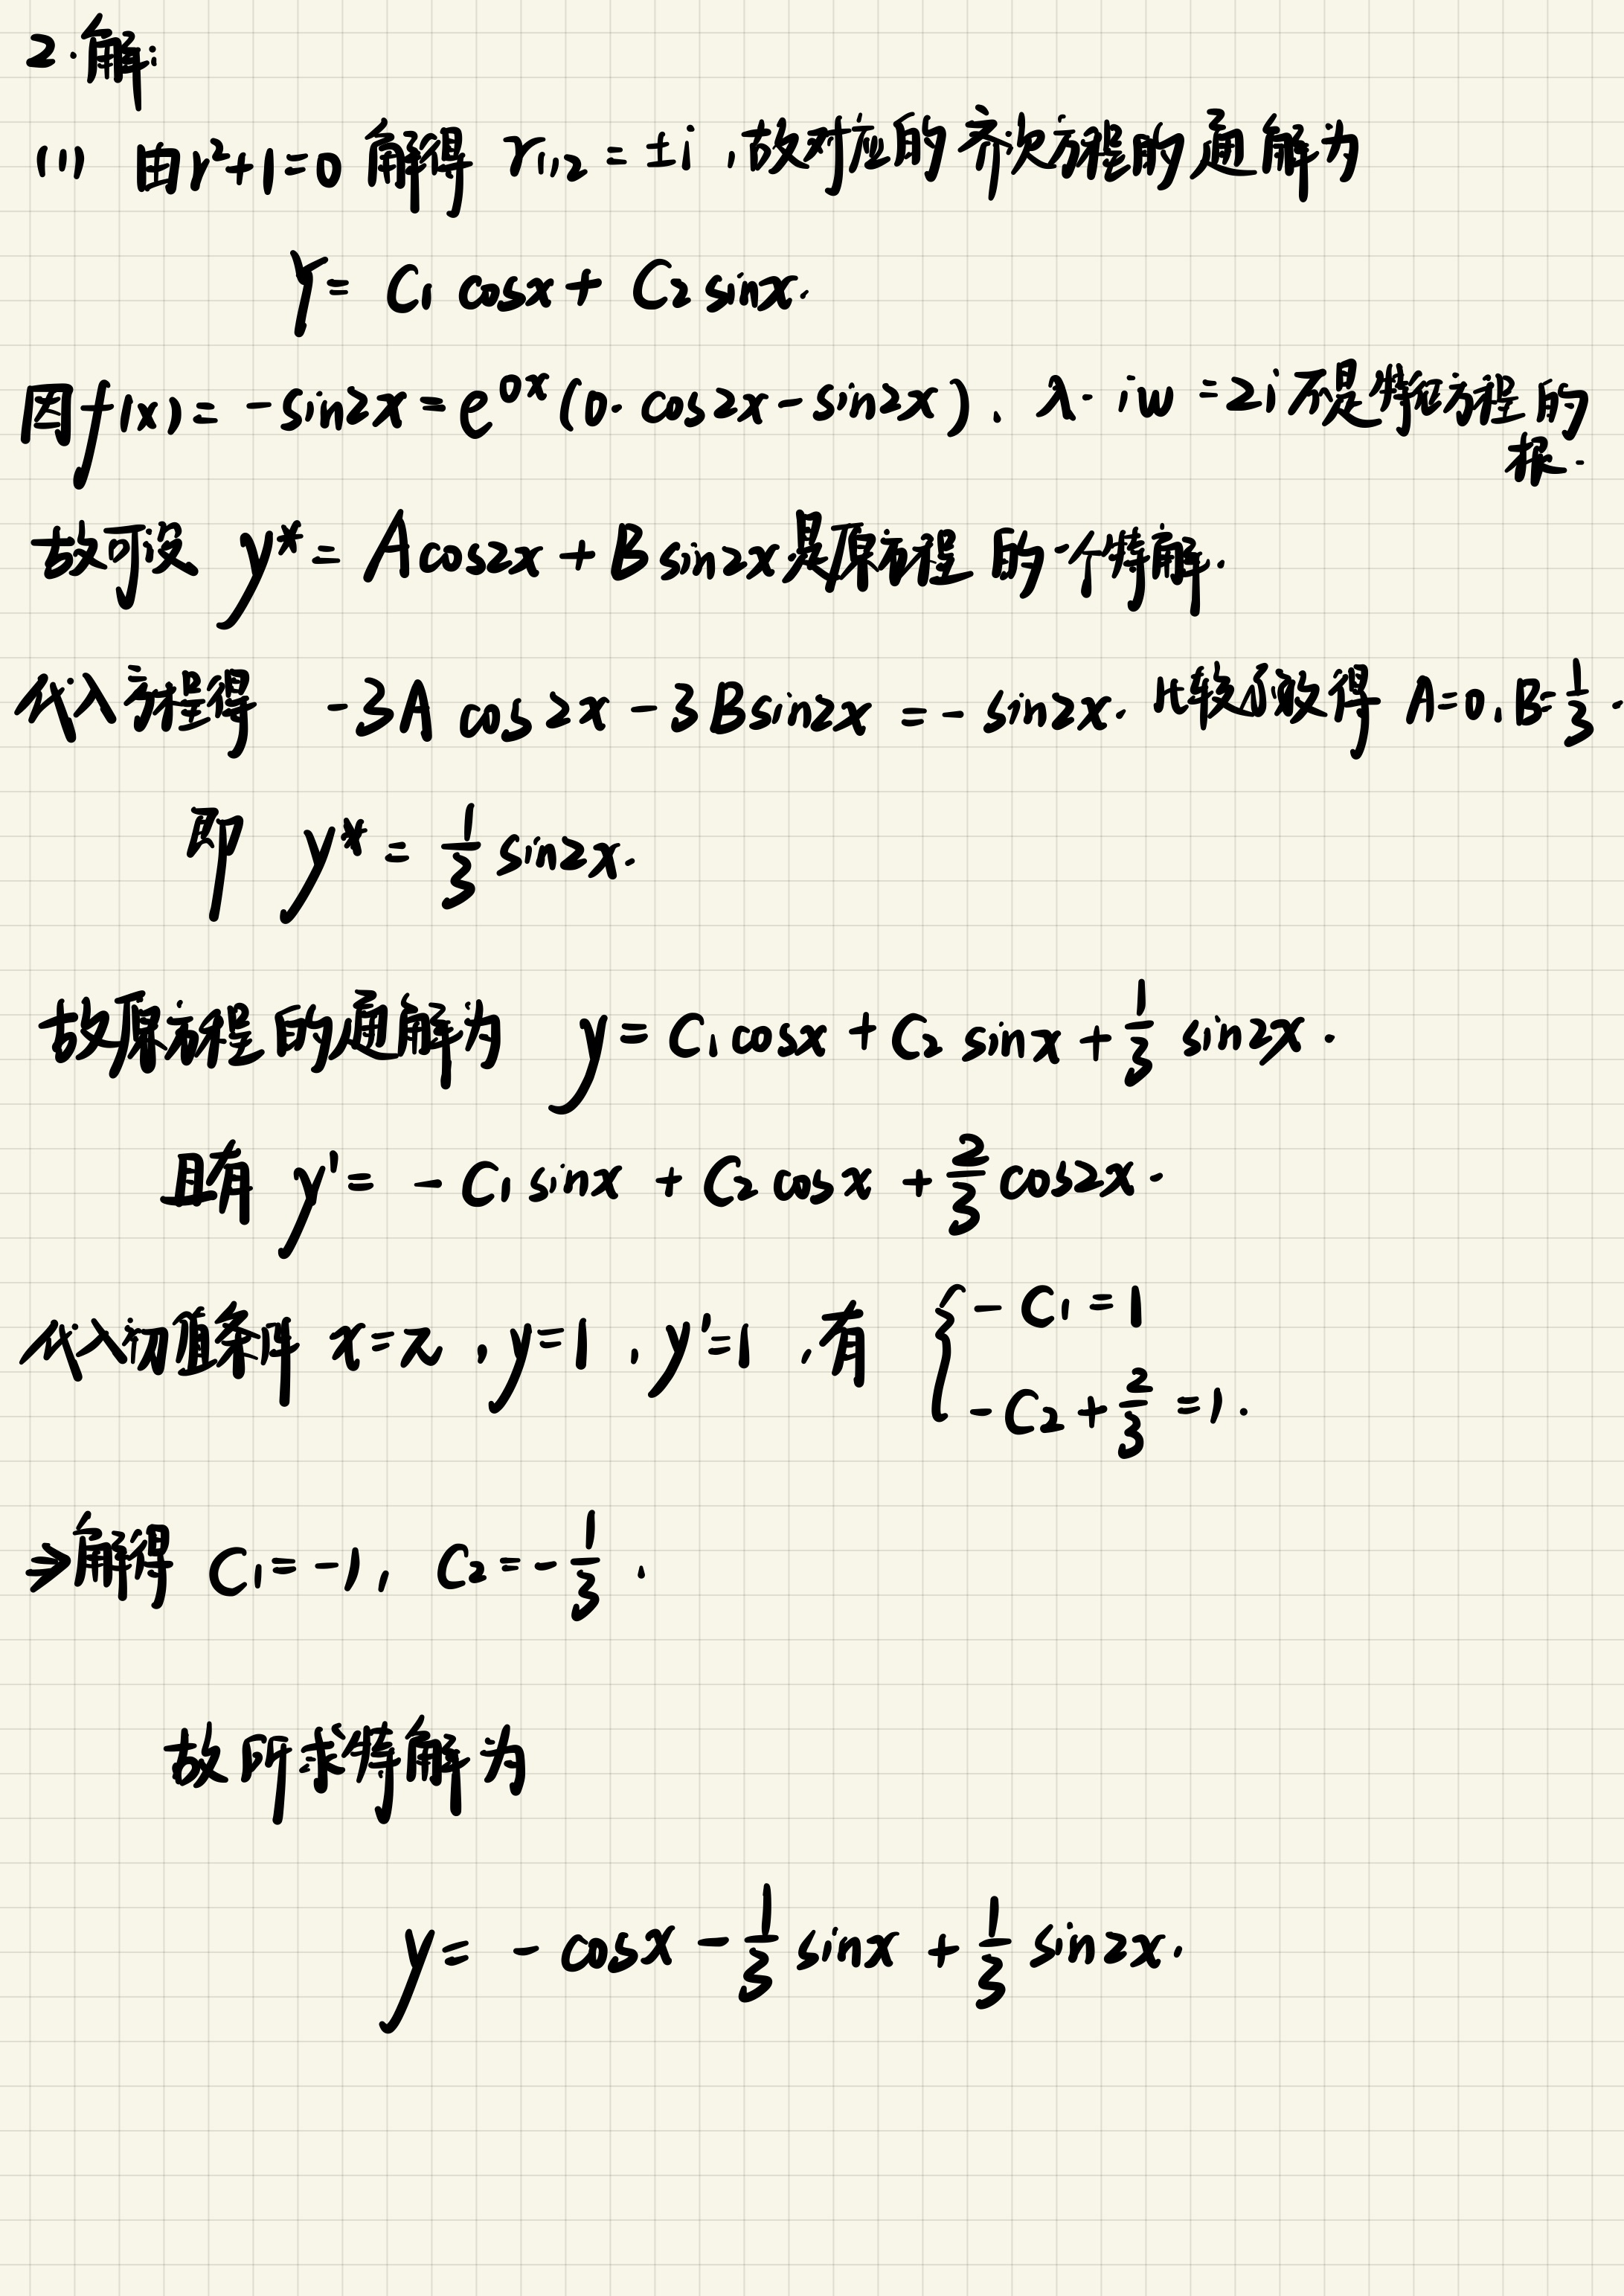 2.解:
(1) 由r²+1=0 解得 r₁,₂ = ±i ,故对应的 齐次方程的 通解为
Y = C₁ cosx + C₂ sinx.
因f(x) = -sin2x = e^{0x}(0· cos2x - sin2x) , λ· iw = 2i 不是特征方程的
根.
故可设 y* = Acos2x + Bsin2x是原方程 的一个特解.
代入方程得 -3A cos2x - 3Bsin2x = - sin2x. 比较系数得 A=0, B=1/3.
即 y* = 1/3 sin2x.
故原方程 的通解为 y = C₁cosx + C₂ sinx + 1/3 sin2x.
且有 y' = - C₁ sinx + C₂ cosx + 2/3 cos2x.
代入初值条件 x=π , y=1 , y'=1 ,有 { - C₁ = 1
- C₂ + 2/3 = 1.
⇒解得 C₁ = -1, C₂ = - 1/3 .
故所求特解为
y = - cosx - 1/3 sinx + 1/3 sin2x.